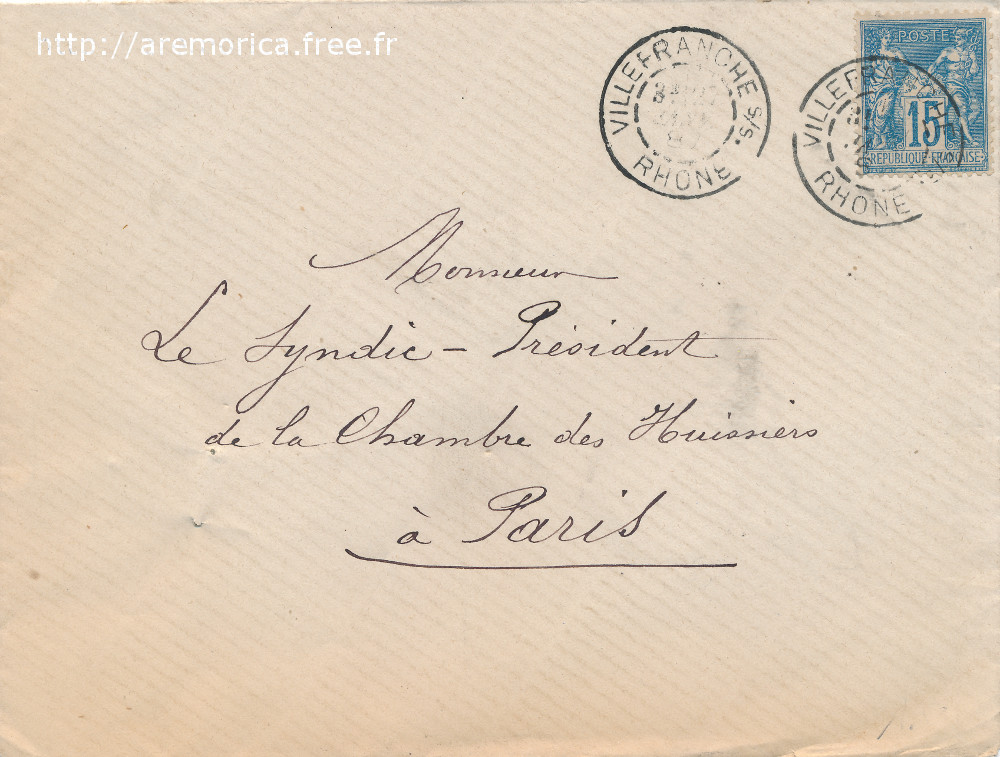 http://aremorica.free.fr
VILLEFRANCHE S/S.
RHONE
POSTE
15
REPUBLIQUE FRANÇAISE
VILLEFRANCHE
RHONE
Monsieur
Le Syndic - Président
de la Chambre des Huissiers
à Paris